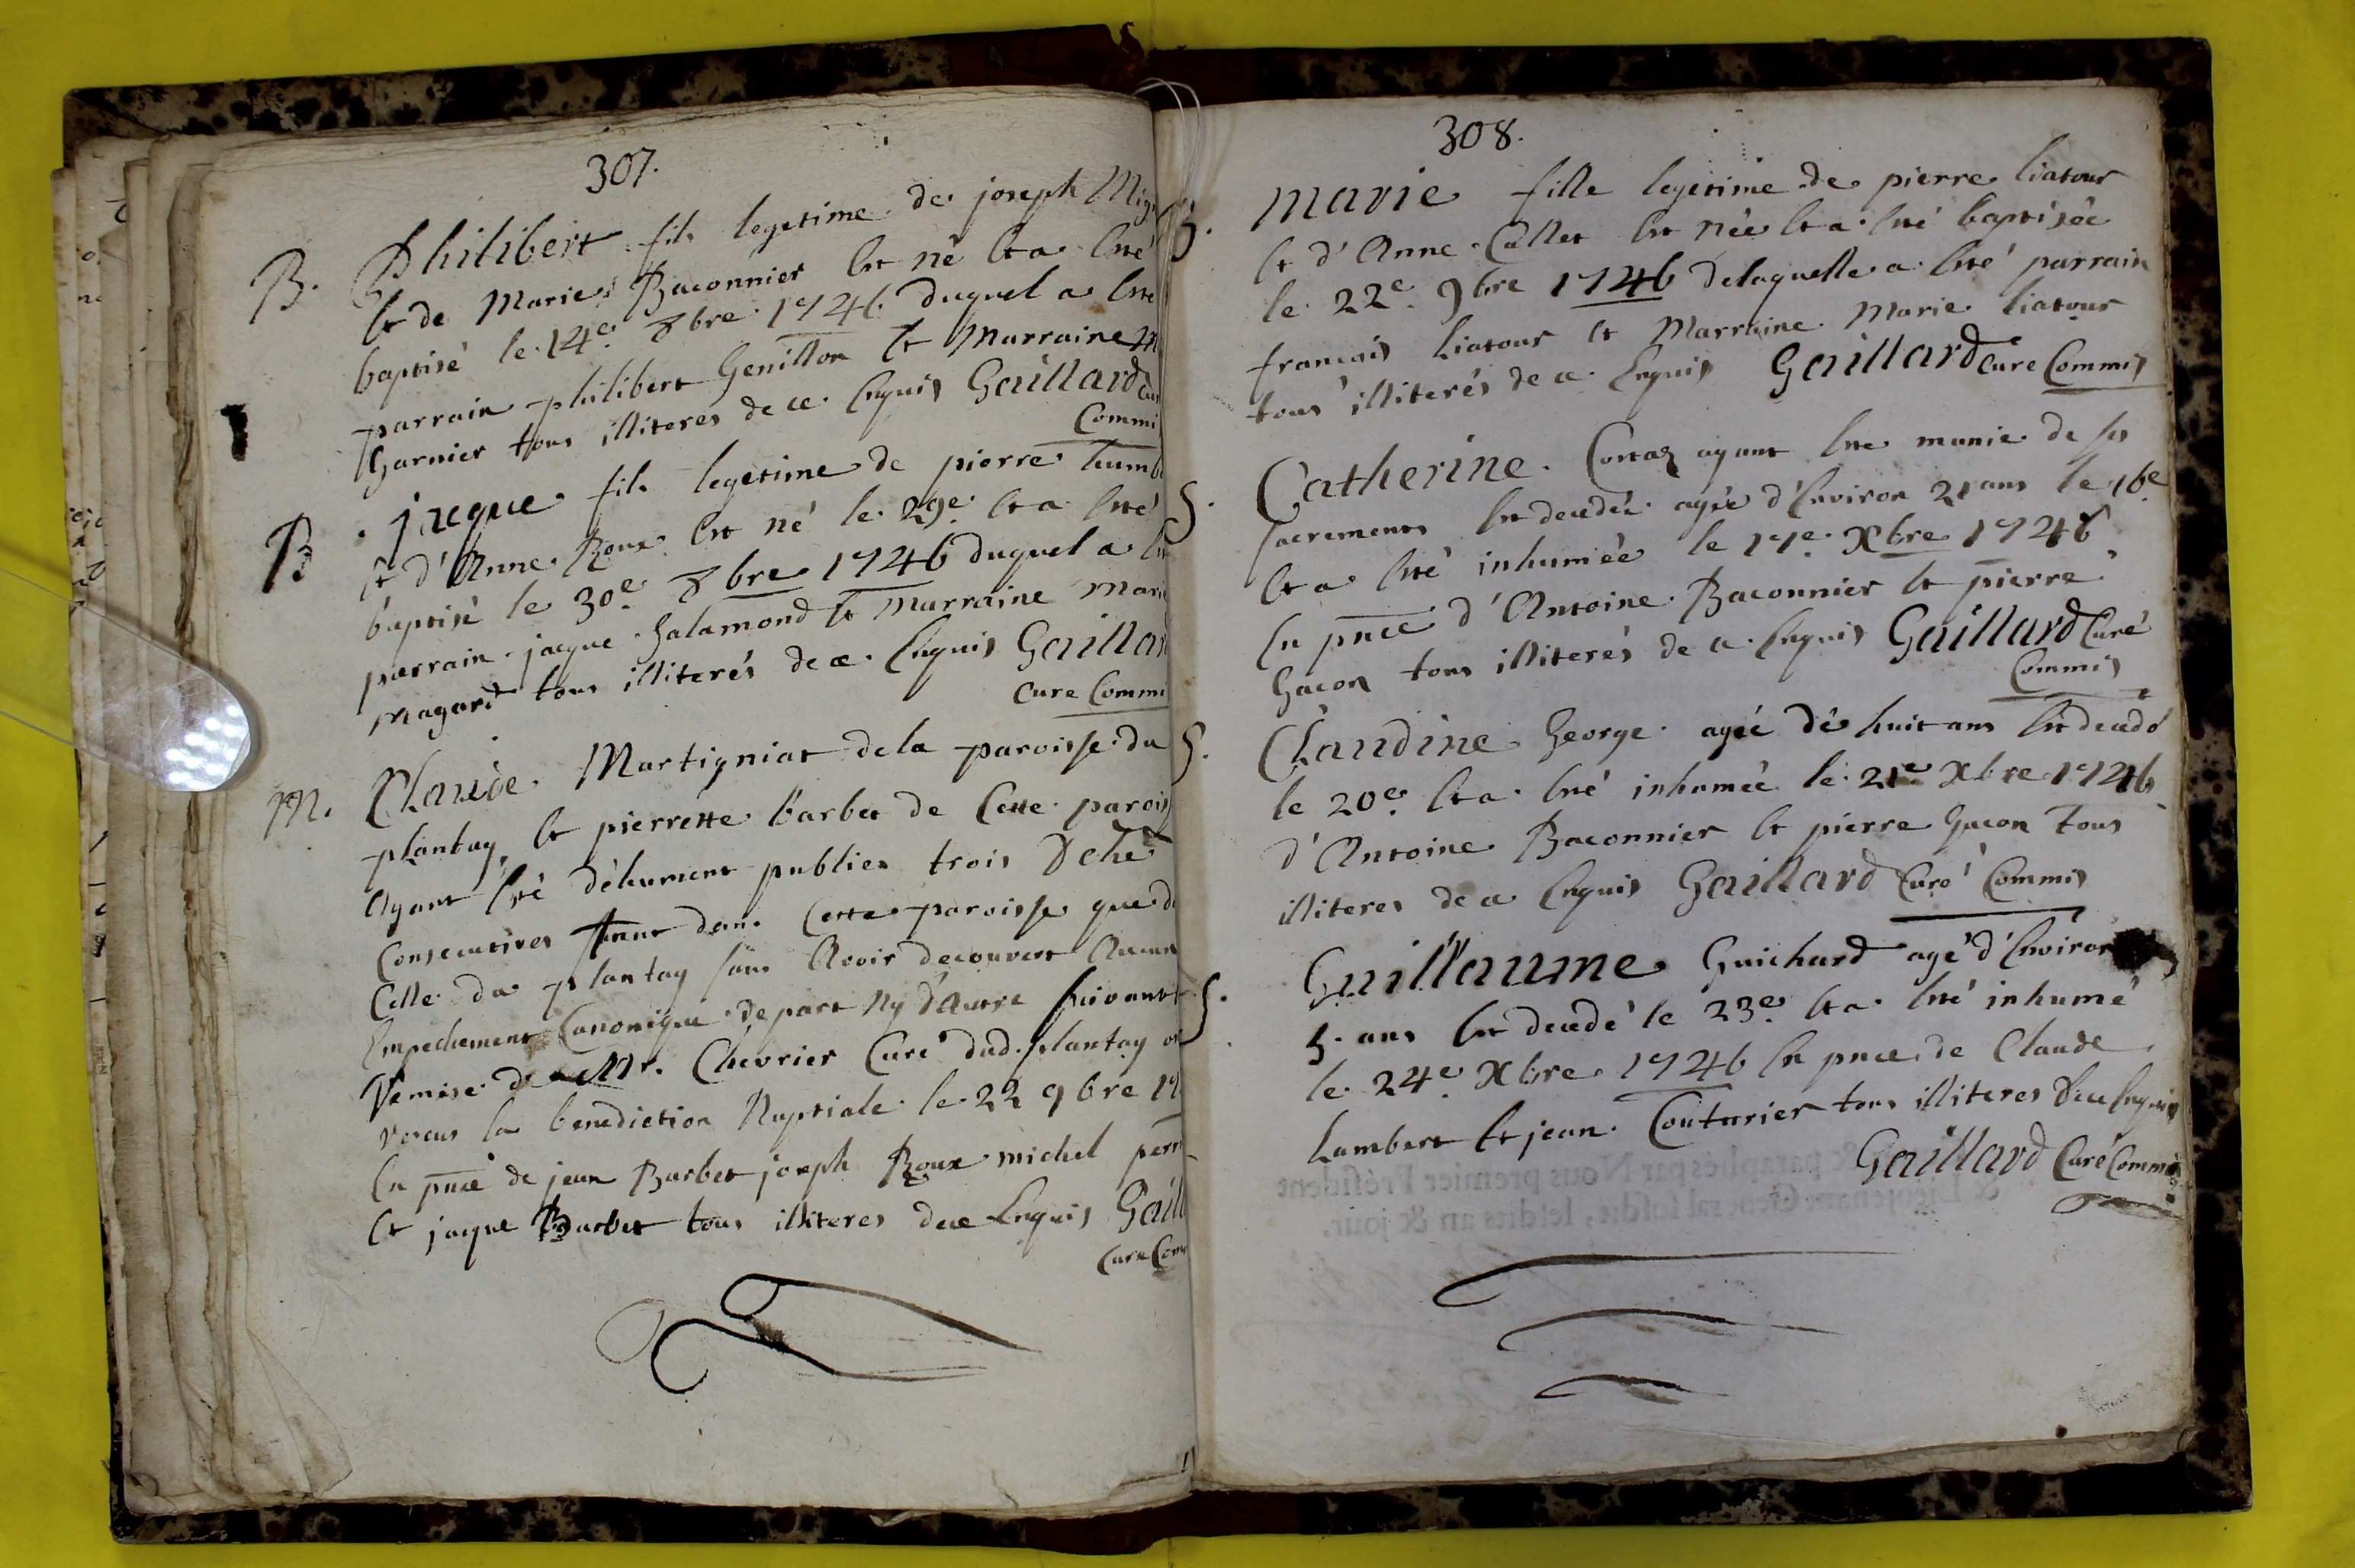 307.
B. Philibert fils legetime de joseph Mig
et de Marie Baconnier est né et a esté
baptisé le 14e 8bre 1746 duquel a esté
parrain philibert Genillon et Marraine M
Garnier tous illiteres de ce Enquis Gaillard Cur
Commi
B jacque fils legetime de pierre humb
et d'Anne Roux est né le 29e et a esté
baptisé le 30e 8bre 1746 duquel a est
parrain jacque Salamond et Marraine Mari
Magard tous illiterés de ce Enquis Gaillar
Cure Commi
M. Claude Martigniat de la paroisse du
plantay et pierrette barbet de Cette parois
Ayant esté dêhument publies trois
Consecutives tant dans Cette paroisse que d
Celle du plantay sans Avoir decouvert Aucun
Empechement Canonique de part ny d'Autre suivant
remise de Mr. Chevrier Curé dud. plantay o
receus la benediction Nuptiale le 22 9bre 17
En pnce de jean Barbet joseph Roux michel perr
et jacque Barbet tous illiteres dece Enquis Gaill
Cure Com
308.
B. Marie fille legetime de pierre liatour
et d'Anne Collet est née et a esté baptisée
le 22e 9bre 1746 de laquelle a esté parrain
francois liatour et Marraine Marie liatour
tous illiterés de ce Enquis Gaillard Cure Commis
S. Catherine Cortaz ayant esté munie de ses
sacrements est decedée agée d'Environ 21 ans le 16e
et a esté inhumée le 17e Xbre 1746
En pnce d'Antoine Baconnier et pierre
Gacon tous illiterés de ce Enquis Gaillard Curé
Commis
S. Claudine George agée de huit ans est decedé
le 20e et a esté inhumée le 21e Xbre 1746
d'Antoine Baconnier et pierre Gacon tous
illiteres de ce Enquis Gaillard Curé Commis
S. Guillaume Guichard agé d'Environ
5. ans est decedé le 23e et a esté inhumé
le 24e Xbre 1746 En pnce de Claude
Lambert et jean Couturier tous illiteres dece Enquis
Gaillard Curé Commis
& paraphés par Nous premier Président
& Lieutenant General susdit, lesdits an & jour.